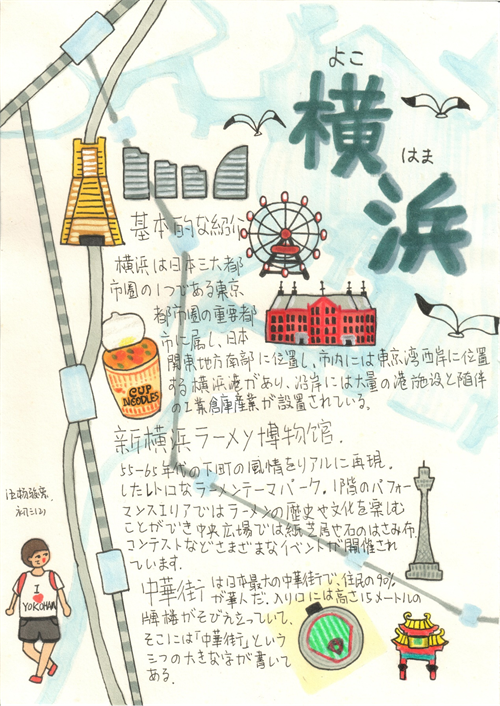 よこ
はま
横浜
基本的な紹介
横浜は日本三大都
市圏の1つである東京
都市圏の重要都
市に属し、日本
関東地方南部に位置し、市内には東京湾西岸に位置
する横浜港があり、沿岸には大量の港施設と随伴
の工業倉庫産業が設置されている。
CUP
NOODLES
新横浜ラーメン博物館.
55-65年代の下町の風情をリアルに再現
したレトロなラーメンテーマパーク。1階のパフォー
マンスエリアではラーメンの歴史や文化を楽しむ
ことができ中央広場では紙芝居や石のはさみ布
コンテストなどさまざまなイベントが開催され
ています.
初三(2)
I
YOKOHAMA
中華街は日本最大の中華街で、住民の90%
が華人だ.入り口には高さ15メートルの
牌楼がそびえ立っていて、
そこには「中華街」という
三つの大きな字が書いて
ある.